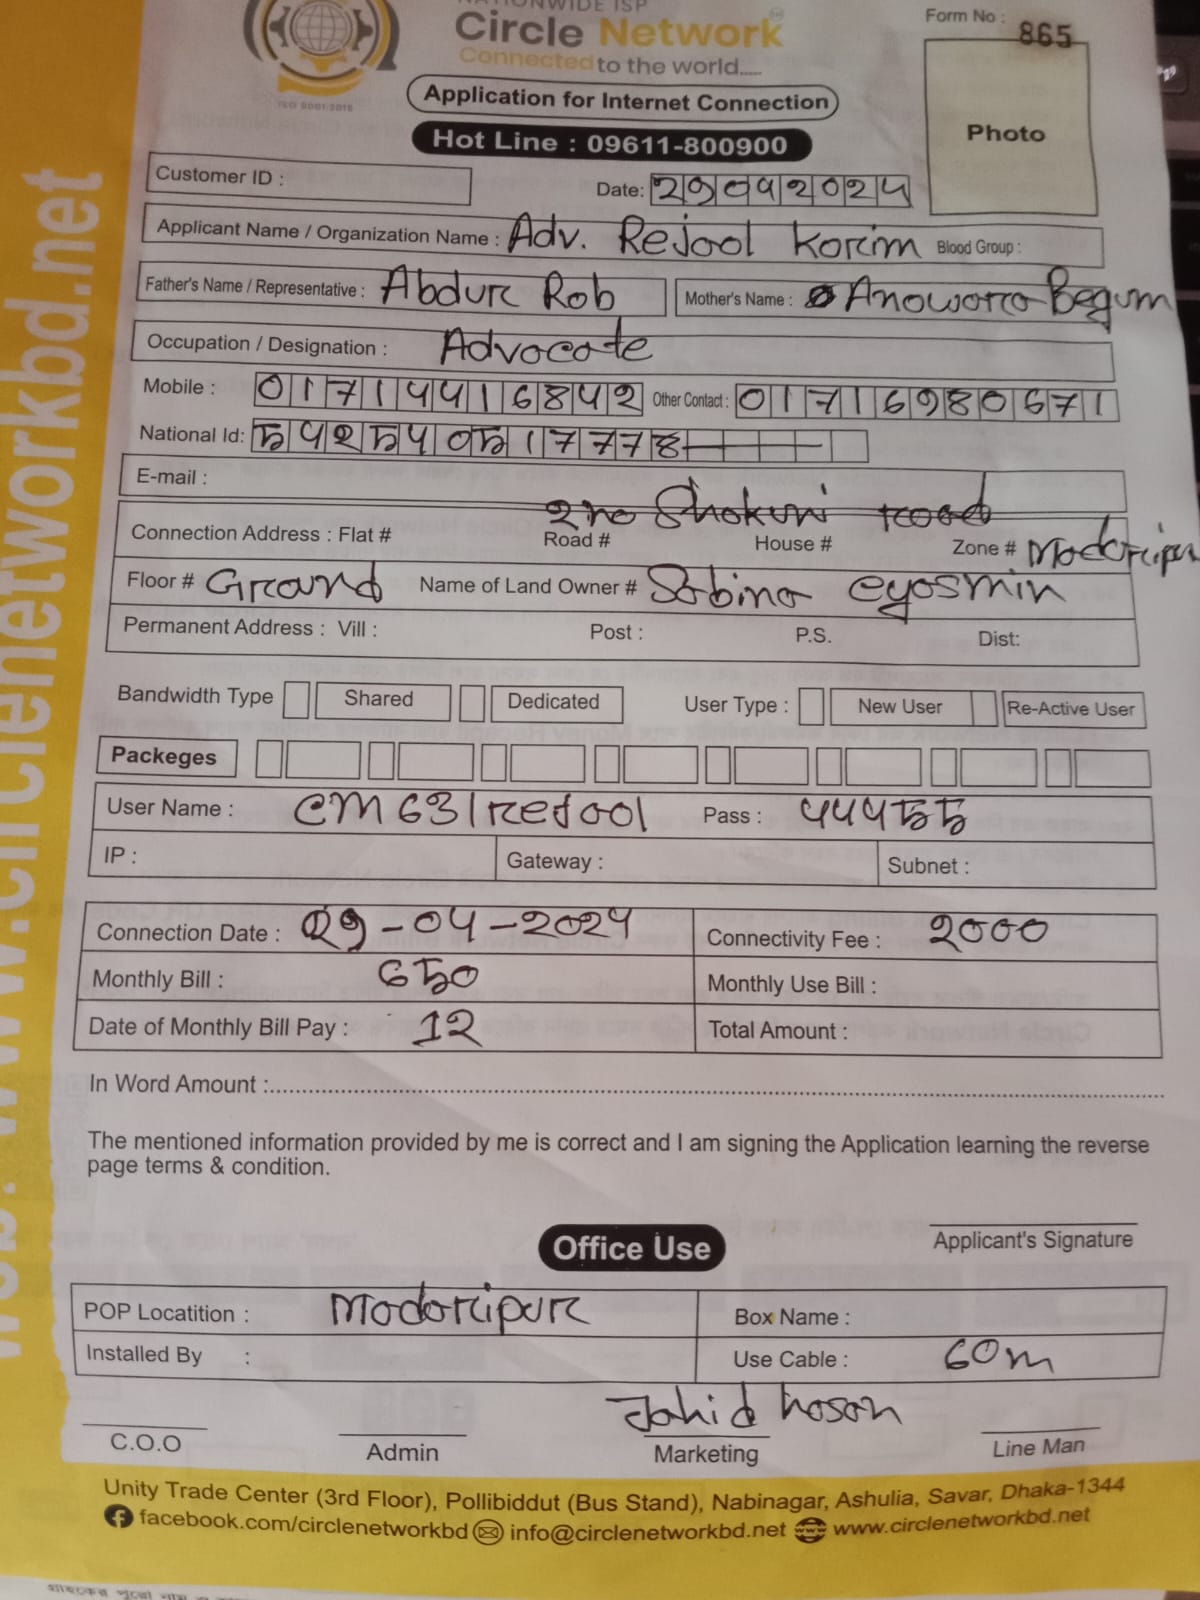 NATIONWIDE ISP
Circle Network
Connected to the world.....
ISO 9001:2015
Form No : 865
Photo
Application for Internet Connection
Hot Line : 09611-800900
Customer ID :
Date: 29042024
Applicant Name / Organization Name : Adv. Rejaul Karim Blood Group :
Father's Name / Representative : Abdur Rob Mother's Name : Anowara Begum
Occupation / Designation : Advocate
Mobile : 01714416842 Other Contact : 01716980671
National Id: 542540517778
E-mail :
2no Shokuni road
Connection Address : Flat # Road # House # Zone # Madaripur
Floor # Ground Name of Land Owner # Sabina eyasmin
Permanent Address : Vill : Post : P.S. Dist:
Bandwidth Type Shared Dedicated User Type : New User Re-Active User
Packeges
User Name : CM631rejaul Pass : 44455
IP : Gateway : Subnet :
Connection Date : 29-04-2024 Connectivity Fee : 2000
Monthly Bill : 650 Monthly Use Bill :
Date of Monthly Bill Pay : 12 Total Amount :
In Word Amount :
The mentioned information provided by me is correct and I am signing the Application learning the reverse
page terms & condition.
Applicant's Signature
Office Use
POP Locatition : Madaripur Box Name :
Installed By : Use Cable : 60m
Jahid hasan
C.O.O Admin Marketing Line Man
Unity Trade Center (3rd Floor), Pollibiddut (Bus Stand), Nabinagar, Ashulia, Savar, Dhaka-1344
facebook.com/circlenetworkbd info@circlenetworkbd.net www.circlenetworkbd.net
www.circlenetworkbd.net